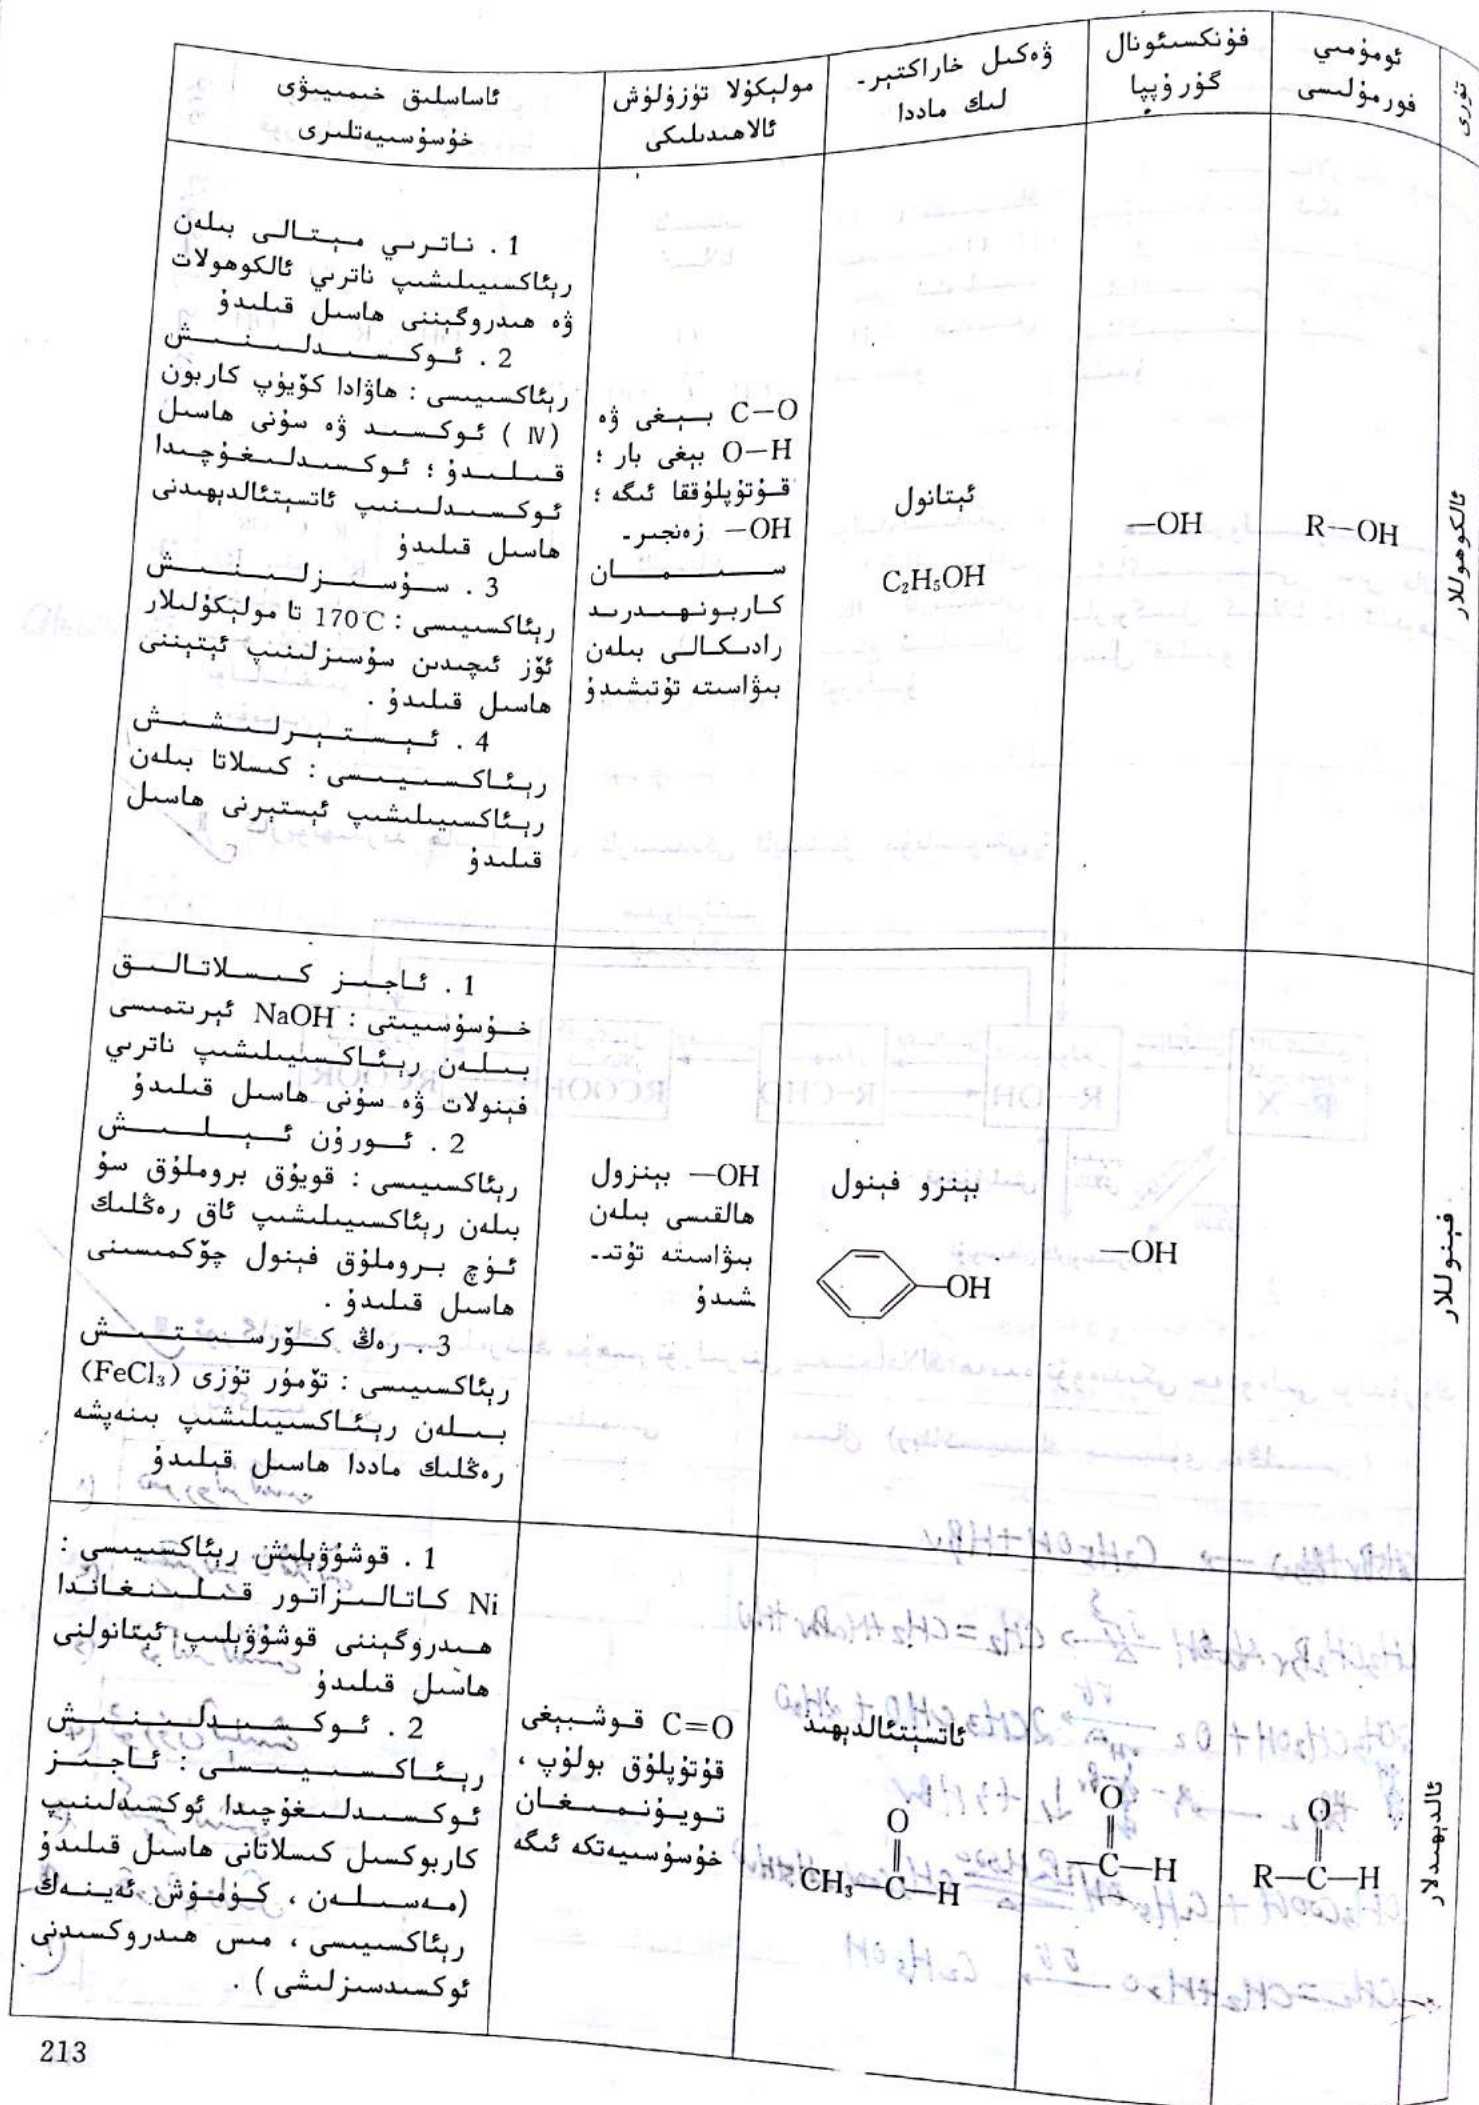 تۈرى
ئومۇمىي
فورمۇلىسى
فۇنكسىئونال
گۇرۇپپا
ۋەكىل خاراكتېر-
لىك ماددا
مولېكۇلا تۈزۈلۈش
ئالاھىدىلىكى
ئاساسلىق خىمىيىۋى
خۇسۇسىيەتلىرى
ئالكوھوللار
R—OH
—OH
ئېتانول
C₂H₅OH
C—O بېغى ۋە
O—H بېغى بار ؛
قۇتۇپلۇققا ئىگە ؛
—OH زەنجىر-
سىمان
كاربونھىدرىد
رادىكالى بىلەن
بىۋاسىتە تۇتىشىدۇ
1 . ناترىي مېتالى بىلەن
رېئاكسىيىلىشىپ ناترىي ئالكوھولات
ۋە ھىدروگېننى ھاسىل قىلىدۇ
2 . ئوكسىدلىنىش
رېئاكسىيىسى : ھاۋادا كۆيۈپ كاربون
(Ⅳ) ئوكسىد ۋە سۇنى ھاسىل
قىلىدۇ ؛ ئوكسىدلىغۇچىدا
ئوكسىدلىنىپ ئاتسېتئالدېھىدنى
ھاسىل قىلىدۇ
3 . سۇسىزلىنىش
رېئاكسىيىسى : 170℃ تا مولېكۇلىلار
ئۆز ئىچىدىن سۇسىزلىنىپ ئېتېننى
ھاسىل قىلىدۇ .
4 . ئېستېرلىشىش
رېئاكسىيىسى : كىسلاتا بىلەن
رېئاكسىيىلىشىپ ئېستېرنى ھاسىل
قىلىدۇ
فېنوللار
—OH
بېنزو فېنول
—OH
—OH بېنزول
ھالقىسى بىلەن
بىۋاسىتە تۇتى-
شىدۇ
1 . ئاجىز كىسلاتالىق
خۇسۇسىيىتى : NaOH ئېرىتمىسى
بىلەن رېئاكسىيىلىشىپ ناترىي
فېنولات ۋە سۇنى ھاسىل قىلىدۇ
2 . ئورۇن ئېلىش
رېئاكسىيىسى : قويۇق بروملۇق سۇ
بىلەن رېئاكسىيىلىشىپ ئاق رەڭلىك
ئۈچ بروملۇق فېنول چۆكمىسىنى
ھاسىل قىلىدۇ .
3 . رەڭ كۆرسىتىش
رېئاكسىيىسى : تۆمۈر تۇزى (FeCl₃)
بىلەن رېئاكسىيىلىشىپ بىنەپشە
رەڭلىك ماددا ھاسىل قىلىدۇ
ئالدېھىدلار
O
‖
R—C—H
O
‖
—C—H
ئاتسېتئالدېھىد
O
‖
CH₃—C—H
C=O قوشبېغى
قۇتۇپلۇق بولۇپ ،
تويۇنمىغان
خۇسۇسىيەتكە ئىگە
1 . قوشۇۋېلىش رېئاكسىيىسى :
Ni كاتالىزاتور قىلىنغاندا
ھىدروگېننى قوشۇۋېلىپ ئېتانولنى
ھاسىل قىلىدۇ
2 . ئوكسىدلىنىش
رېئاكسىيىسى : ئاجىز
ئوكسىدلىغۇچىدا ئوكسىدلىنىپ
كاربوكسىل كىسلاتانى ھاسىل قىلىدۇ
(مەسىلەن ، كۈمۈش ئەينەك
رېئاكسىيىسى ، مىس ھىدروكسىدنى
ئوكسىدسىزلىشى ) .
213